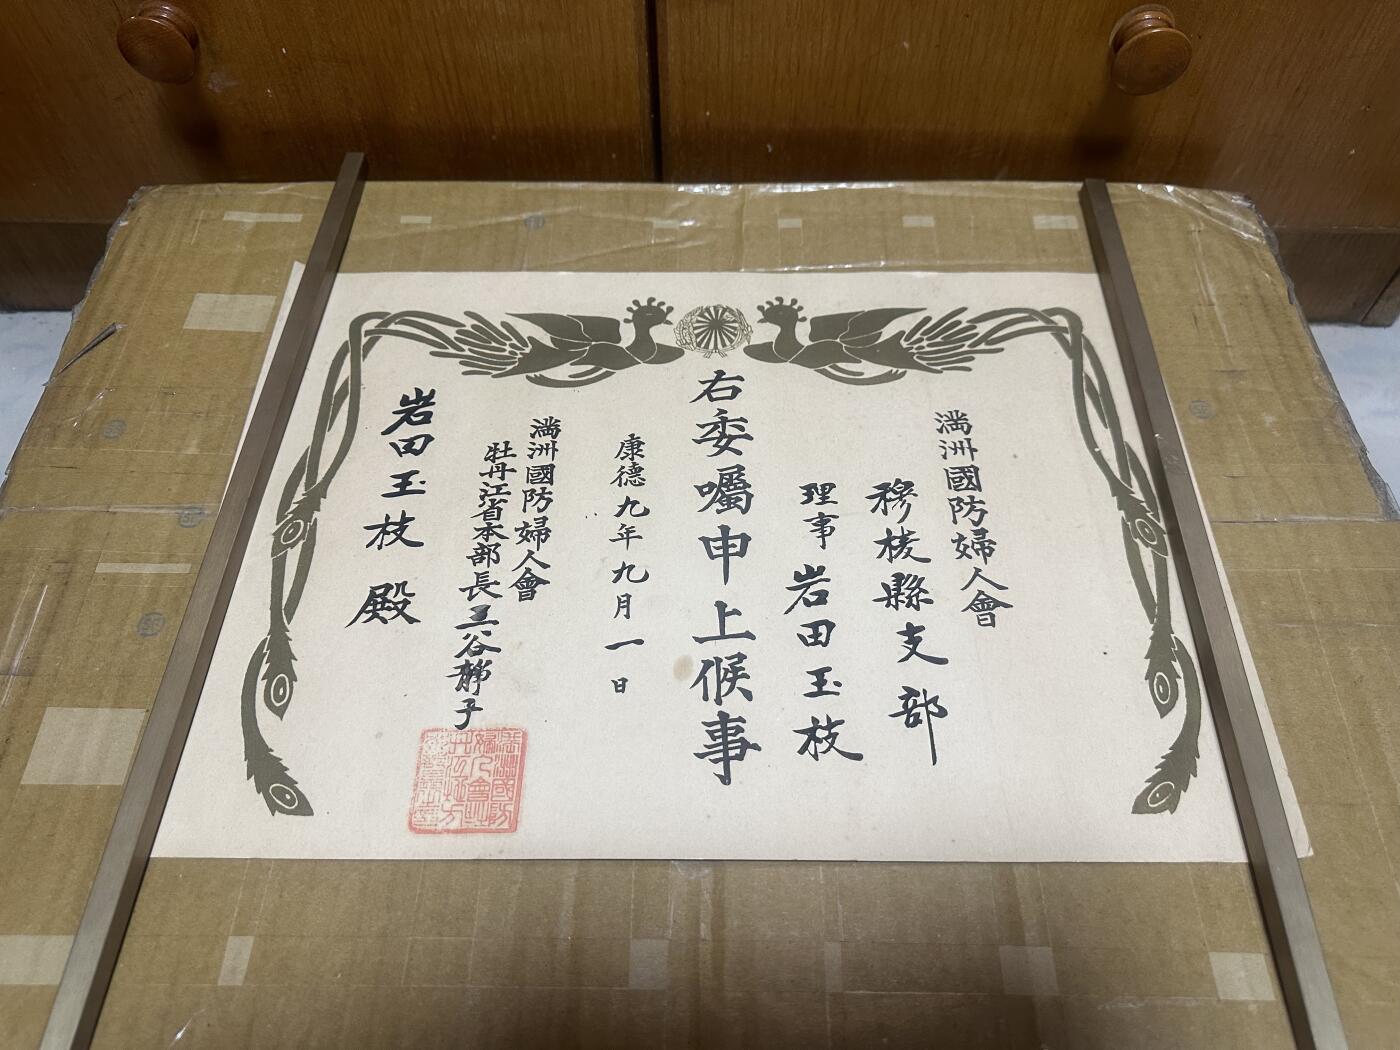 満洲國防婦人會
穆棱縣支部
理事 岩田玉枝
右委囑申上候事
康德九年九月一日
満洲國防婦人會
牡丹江省本部長 谷靜子
岩田玉枝殿